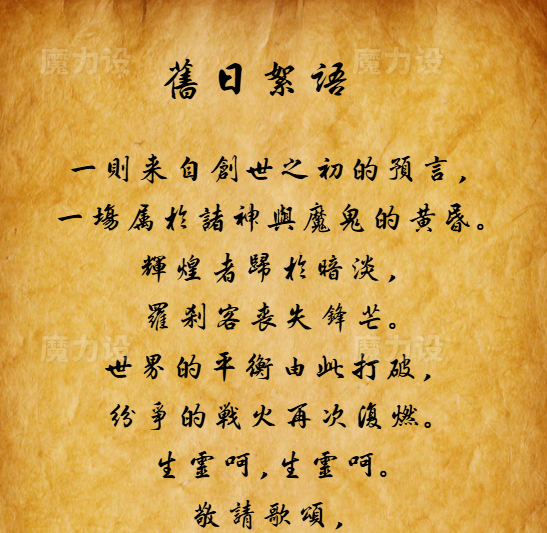 舊日絮語
一則来自創世之初的預言，
一場属於諸神與魔鬼的黄昏。
輝煌者歸於暗淡，
羅刹客喪失鋒芒。
世界的平衡由此打破，
纷爭的戦火再次復燃。
生霊呵，生霊呵。
敬請歌頌，
魔力设
魔力设
魔力设
魔力设